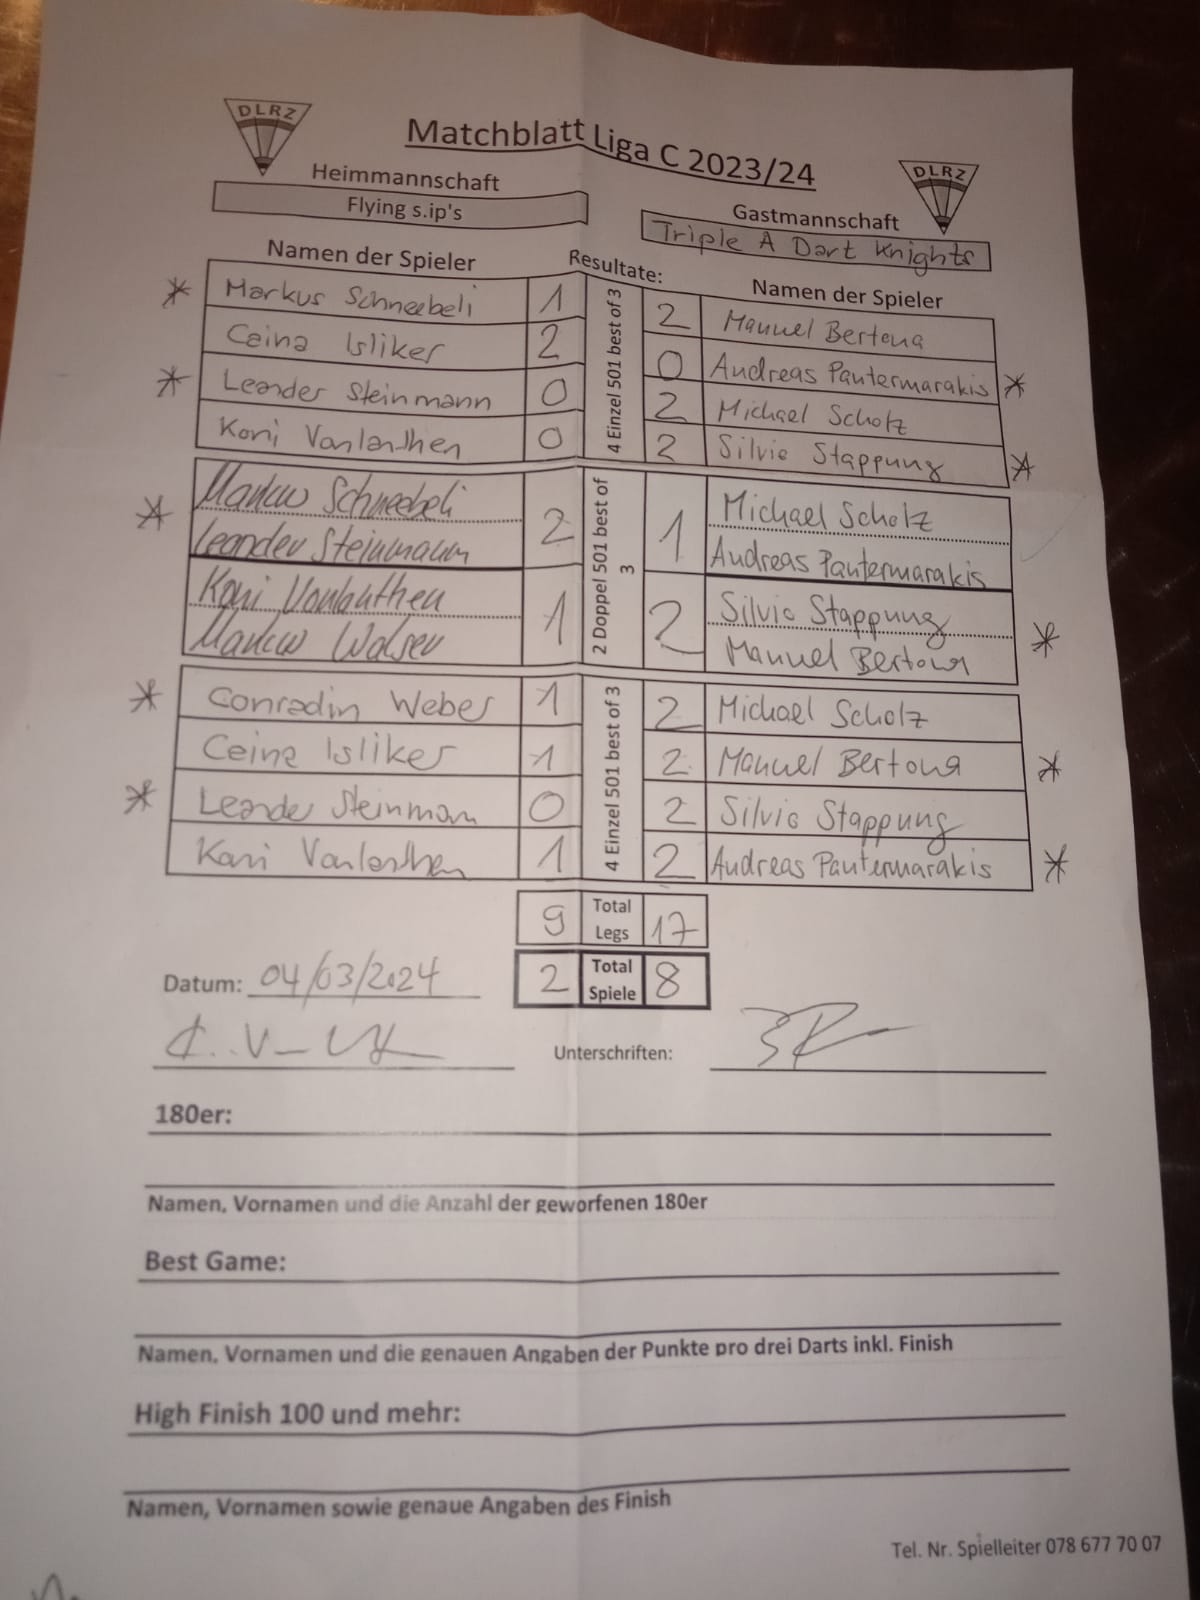 DLRZ
Matchblatt Liga C 2023/24
DLRZ
Heimmannschaft
Gastmannschaft
Flying s.ip's
Triple A Dart Knights
Namen der Spieler
Resultate:
Namen der Spieler
* Markus Schneebeli 1 2 Manuel Bertona
Ceina Isliker 2 0 Andreas Pantermarakis *
* Leander Steinmann 0 2 Michael Scholz
Koni Vonlanthen 0 2 Silvio Stappung *
4 Einzel 501 best of 3
* Markus Schneebeli 2 1 Michael Scholz
Leander Steinmann Andreas Pantermarakis
Koni Vonlanthen 1 2 Silvio Stappung *
Markus Walser Manuel Bertona
2 Doppel 501 best of 3
* Conradin Weber 1 2 Michael Scholz
Ceina Isliker 1 2 Manuel Bertona *
* Leander Steinman 0 2 Silvio Stappung
Koni Vonlanthen 1 2 Andreas Pantermarakis *
4 Einzel 501 best of 3
9 Total Legs 17
2 Total Spiele 8
Datum: 04/03/2024
Unterschriften:
180er:
Namen, Vornamen und die Anzahl der geworfenen 180er
Best Game:
Namen, Vornamen und die genauen Angaben der Punkte pro drei Darts inkl. Finish
High Finish 100 und mehr:
Namen, Vornamen sowie genaue Angaben des Finish
Tel. Nr. Spielleiter 078 677 70 07